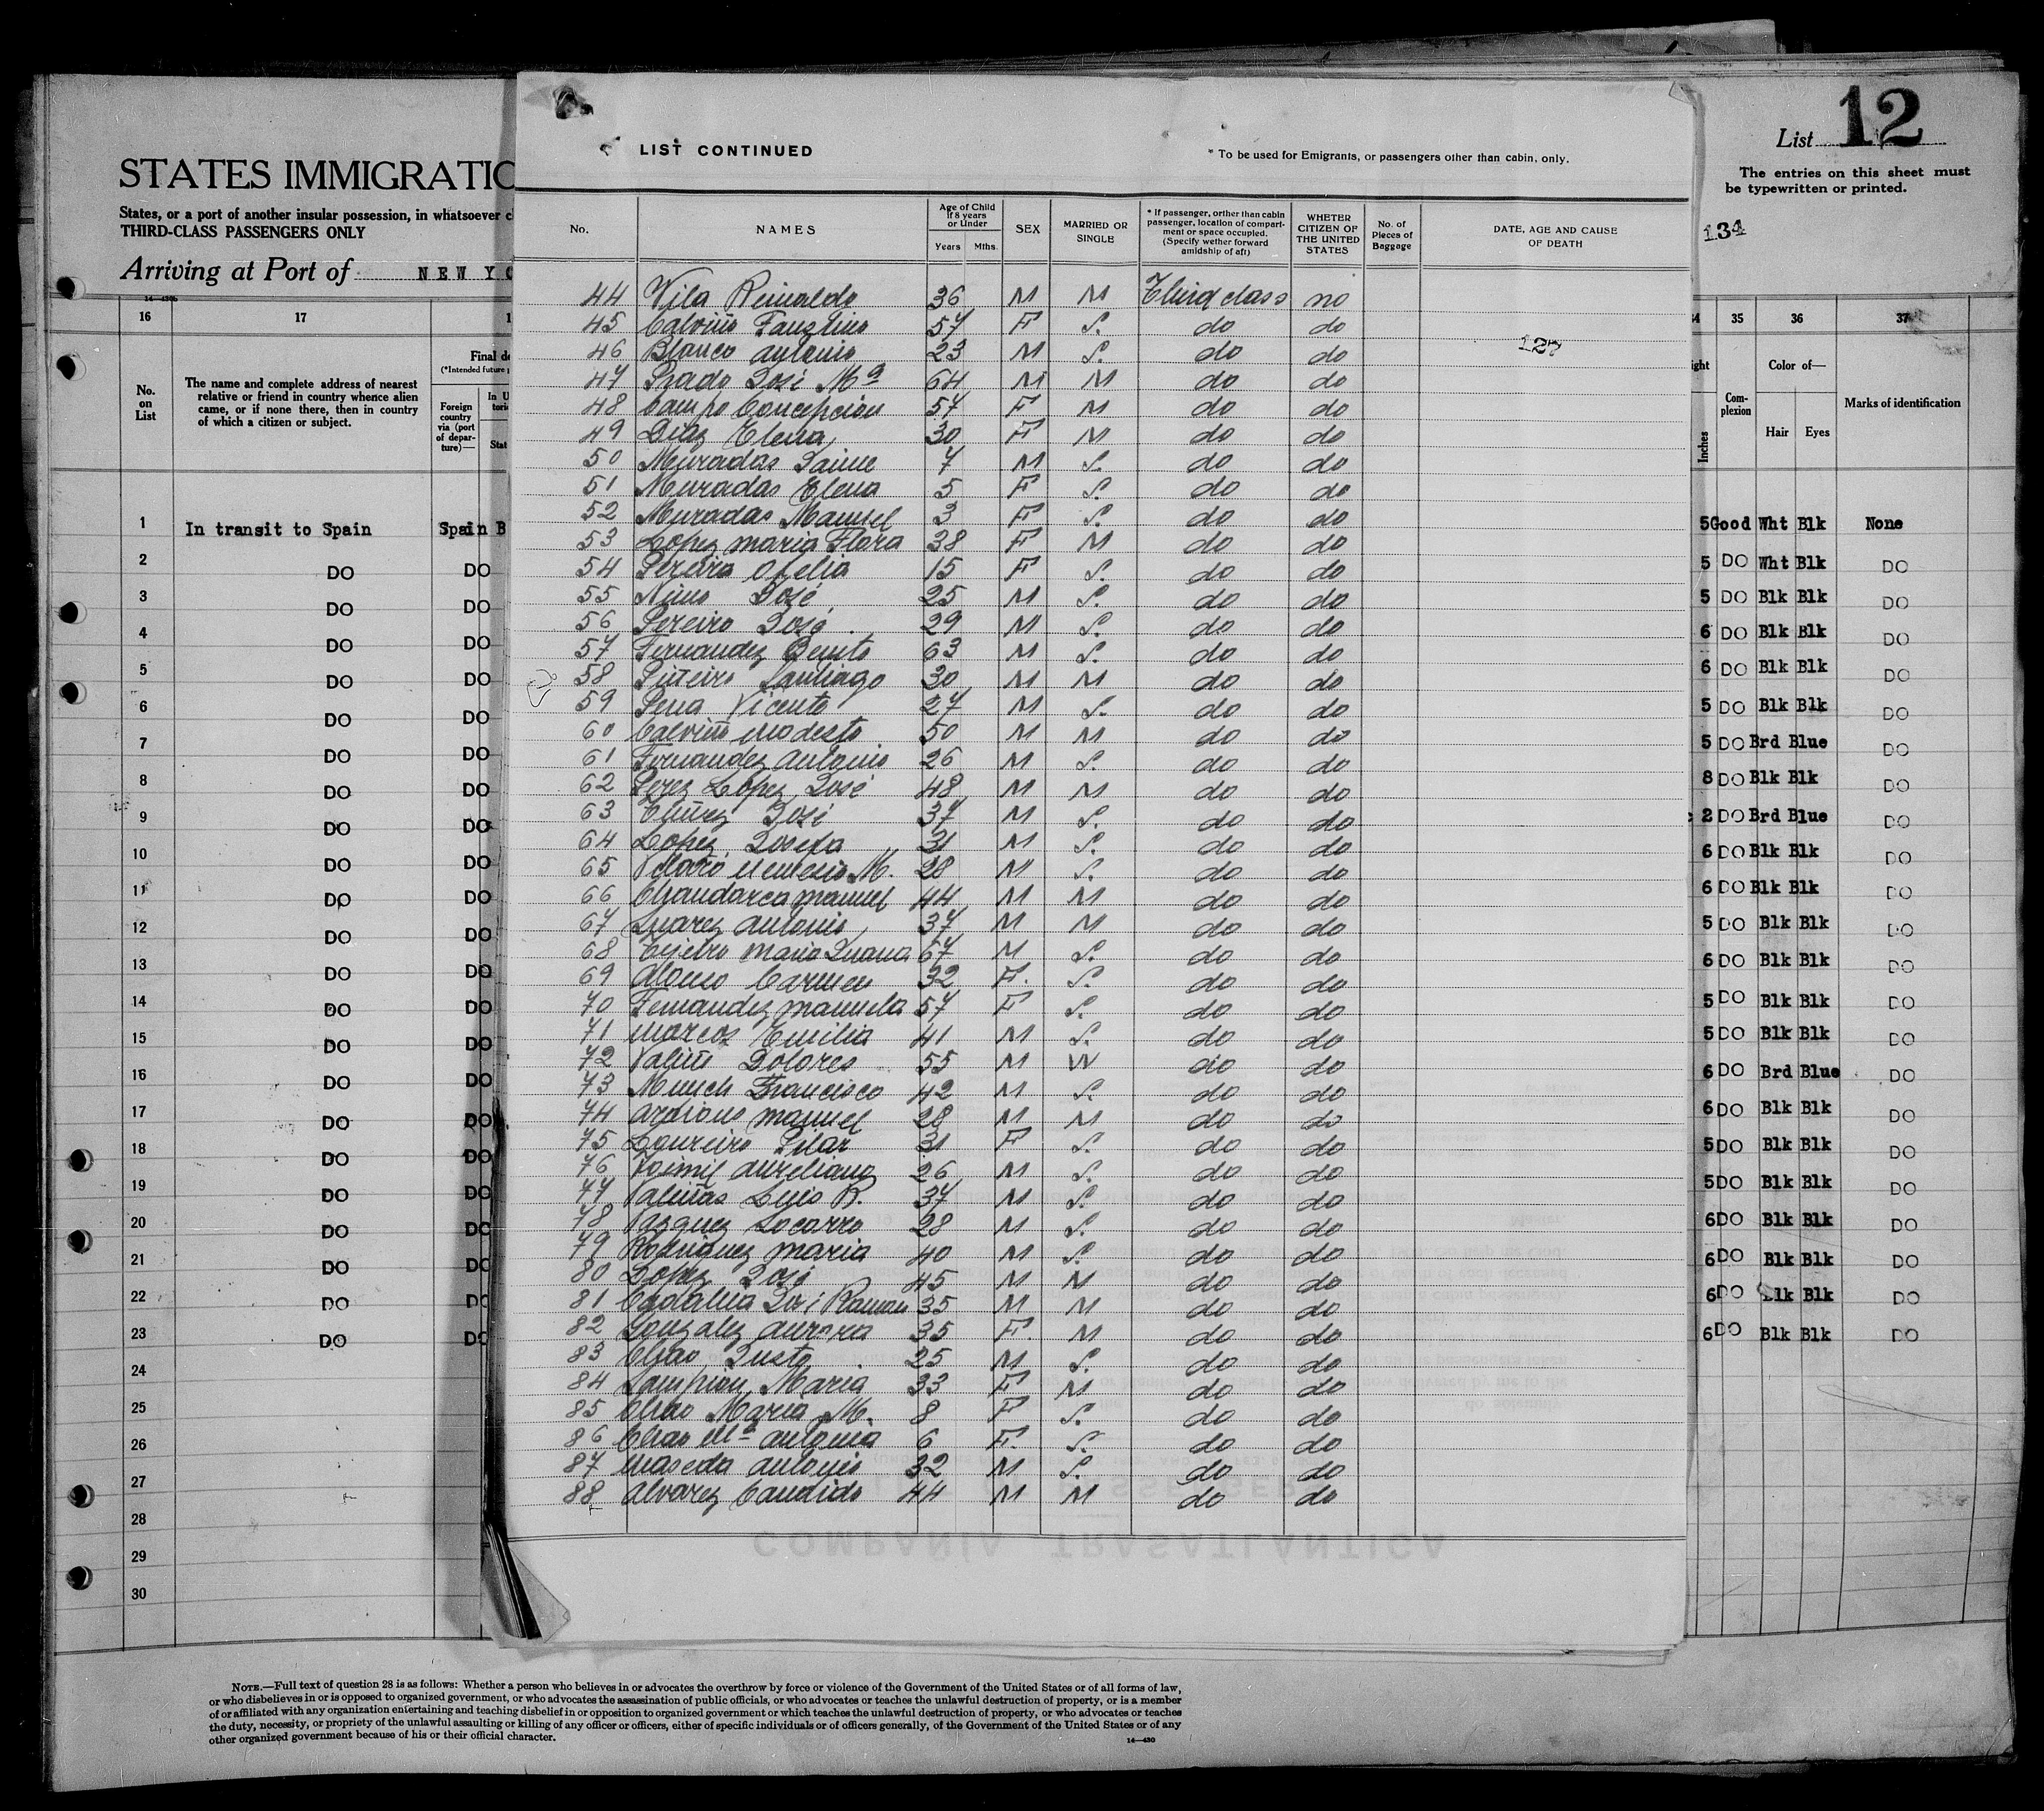 12
List
The entries on this sheet must
be typewritten or printed.
134
STATES IMMIGRATIO
States, or a port of another insular possession, in whatsoever
THIRD-CLASS PASSENGERS ONLY
Arriving at Port of NEW YO
14-430b
16 17
No. on List
The name and complete address of nearest
relative or friend in country whence alien
came, or if none there, then in country
of which a citizen or subject.
Final de
(*Intended future p
Foreign
country
via (port
of depar-
ture)—
In U
Stat
1 In transit to Spain Spain B
2 DO DO
3 DO DO
4 DO DO
5 DO DO
6 DO DO
7 DO DO
8 DO DO
9 DO DO
10 DO DO
11 DO DO
12 DO DO
13 DO DO
14 DO DO
15 DO DO
16 DO DO
17 DO DO
18 DO DO
19 DO DO
20 DO DO
21 DO DO
22 DO DO
23 DO DO
24
25
26
27
28
29
30
LIST CONTINUED
* To be used for Emigrants, or passengers other than cabin, only.
No.
NAMES
Age of Child
if 8 years
or Under
Years Mths.
SEX
MARRIED OR
SINGLE
* If passenger, orther than cabin
passenger, location of compart-
ment or space occupied.
(Specify wether forward
amidship of aft)
WHETER
CITIZEN OF
THE UNITED
STATES
No. of
Pieces of
Baggage
DATE, AGE AND CAUSE
OF DEATH
127
44 Vila Reinaldo 36 M M Third class no
45 Calviño Faustino 57 F S. do do
46 Blanco Antonio 23 M S. do do
47 Prado José Mª 64 M M do do
48 Campo Concepcion 57 F M do do
49 Diaz Elena 30 F M do do
50 Muradas Jaime 7 M S. do do
51 Muradas Elena 5 F S. do do
52 Muradas Manuel 3 F S. do do
53 Lopez Maria Flora 38 F M do do
54 Pereira Ofelia 15 F S. do do
55 José 25 M S. do do
56 Pereiro José 29 M S. do do
57 Fernandez Benito 63 M S. do do
58 Piñeiro Santiago 30 M M do do
59 Pena Vicente 27 M S. do do
60 Calviño Modesto 50 M M do do
61 Fernandez Antonio 26 M S. do do
62 Perez Lopez José 48 M M do do
63 José 37 M S. do do
64 Lopez Josefa 31 M S. do do
65 Nemesio M. 28 M S. do do
66 Chandarca Manuel 44 M M do do
67 Suarez Antonio 37 M M do do
68 Maria Juana 67 M S. do do
69 Alonso Carmen 32 F. S. do do
70 Fernandez Manuela 57 F S. do do
71 Marcos Emilia 41 M S. do do
72 Valiño Dolores 55 M W do do
73 Francisco 42 M S. do do
74 Manuel 28 M M do do
75 Loureiro Pilar 31 F S. do do
76 Voimil Aureliano 26 M S. do do
77 Luis R. 37 M S. do do
78 Vazquez Socorro 28 M S. do do
79 Rodriguez Maria 40 M S. do do
80 Lopez José 45 M M do do
81 José Ramon 35 M M do do
82 Gonzalez Aurora 35 F. M do do
83 Chao Justo 25 M S. do do
84 Maria 33 F M do do
85 Chao Maria M. 8 F S. do do
86 Chao Mª Antonia 6 F. S. do do
87 Maseda Antonio 32 M S. do do
88 Alvarez Candido 44 M M do do
COMPAÑIA TRASATLANTICA
34 35 36 37
ight
Inches
Com-
plexion
Color of—
Hair Eyes
Marks of identification
5 Good Wht Blk None
5 DO Wht Blk DO
5 DO Blk Blk DO
6 DO Blk Blk DO
6 DO Blk Blk DO
5 DO Blk Blk DO
5 DO Brd Blue DO
8 DO Blk Blk DO
2 DO Brd Blue DO
6 DO Blk Blk DO
6 DO Blk Blk DO
5 DO Blk Blk DO
6 DO Blk Blk DO
5 DO Blk Blk DO
5 DO Blk Blk DO
6 DO Brd Blue DO
6 DO Blk Blk DO
5 DO Blk Blk DO
5 DO Blk Blk DO
6 DO Blk Blk DO
6 DO Blk Blk DO
6 DO Blk Blk DO
6 DO Blk Blk DO
NOTE.—Full text of question 28 is as follows: Whether a person who believes in or advocates the overthrow by force or violence of the Government of the United States or of all forms of law,
or who disbelieves in or is opposed to organized government, or who advocates the assassination of public officials, or who advocates or teaches the unlawful destruction of property, or is a member
of or affiliated with any organization entertaining and teaching disbelief in or opposition to organized government or which teaches the unlawful destruction of property, or who advocates or teaches
the duty, necessity, or propriety of the unlawful assaulting or killing of any officer or officers, either of specific individuals or of officers generally, of the Government of the United States or of any
other organized government because of his or their official character.
14—430